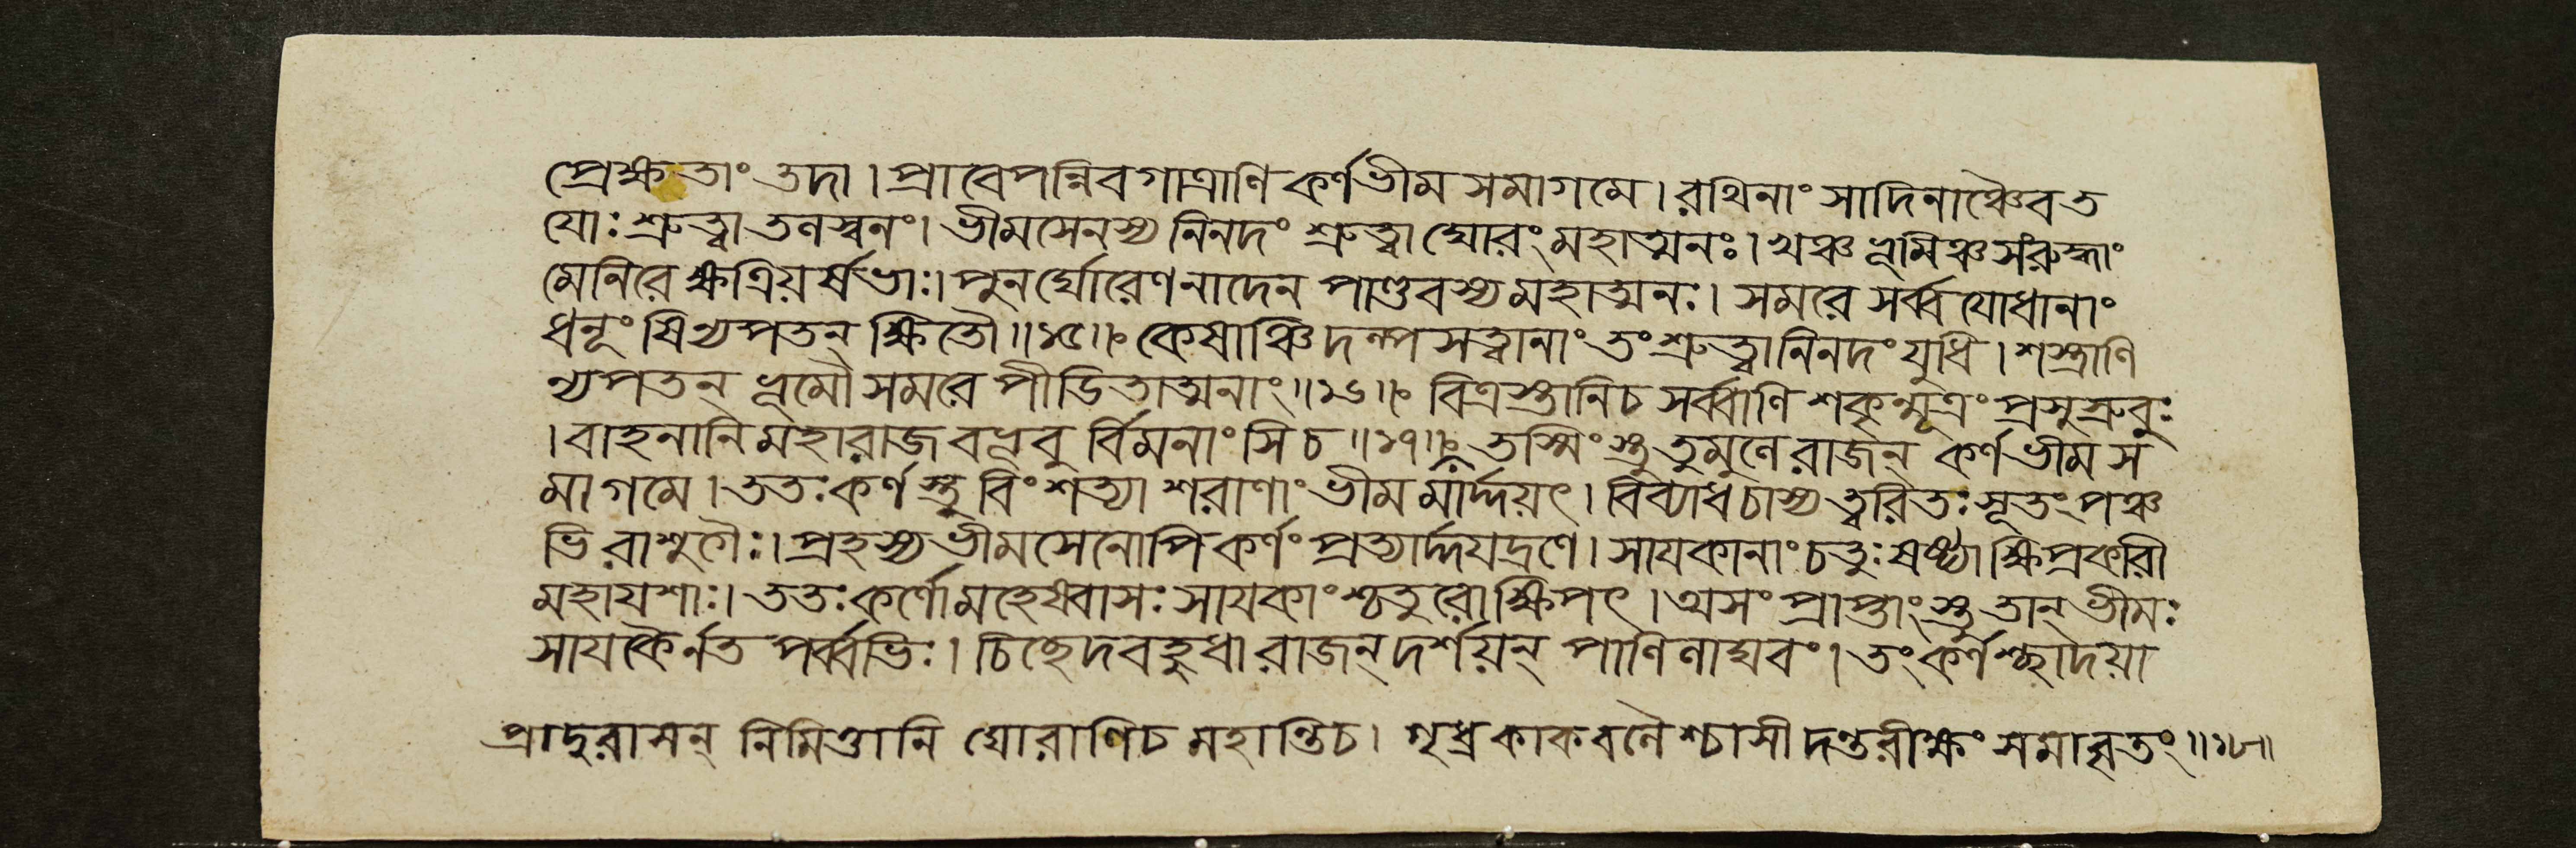 প্রেক্ষতাং তদা। প্রাবেপন্নিবগাত্রাণি কর্ণভীমসমাগমে। রথিনাং সাদিনাঞ্চৈবত
যোঃ শ্রুত্বা তলস্বনং। ভীমসেনস্য নিনদং শ্রুত্বা ঘোরং মহাত্মনঃ। খঞ্চ ভূমিঞ্চ সংরুদ্ধাং
মেনিরে ক্ষত্রিয়র্ষভাঃ। পুনর্ঘোরেণনাদেন পাণ্ডবস্য মহাত্মনঃ। সমরে সর্ব্বযোধানাং
ধনূংষিণ্যপতন্ ক্ষিতৌ॥১৫॥ কেষাঞ্চিদল্পসত্বানাং তং শ্রুত্বানিনদং যুধি। শস্ত্রাণি
ন্যপতন্ ভূমৌ সমরে পীডিতাত্মনাং॥১৬॥ বিত্রস্তানিচ সর্ব্বাণি শকৃন্মূত্রং প্রসুস্রুবুঃ
। বাহনানি মহারাজ বভূবু র্বিমনাংসি চ॥১৭॥ তস্মিংস্তু তুমুলে রাজন্ কর্ণভীম স
মাগমে। ততঃ কর্ণস্তু বিংশত্যা শরাণাং ভীমমার্দ্দয়ৎ। বিব্যাধ চাস্য ত্বরিতঃ সূতং পঞ্চ
ভিরাশুগৈঃ। প্রহস্য ভীমসেনোপি কর্ণং প্রত্যার্দ্দযদ্রণে। সাযকানাং চতুঃষষ্ট্যা ক্ষিপ্রকারী
মহাযশাঃ। ততঃ কর্ণো মহেষ্বাসঃ সাযকাংশ্চতুরোক্ষিপৎ। অসংপ্রাপ্তাংস্তু তান্ ভীমঃ
সাযকৈর্নতপর্ব্বভিঃ। চিচ্ছেদ বহুধা রাজন্ দর্শয়ন্ পাণিলাঘবং। তং কর্ণশ্ছাদয়া
প্রাদুরাসন্ নিমিত্তানি ঘোরাণিচ মহান্তিচ। গৃধ্রকাকবলৈশ্চাসীদন্তরীক্ষং সমাবৃতং॥১৮॥